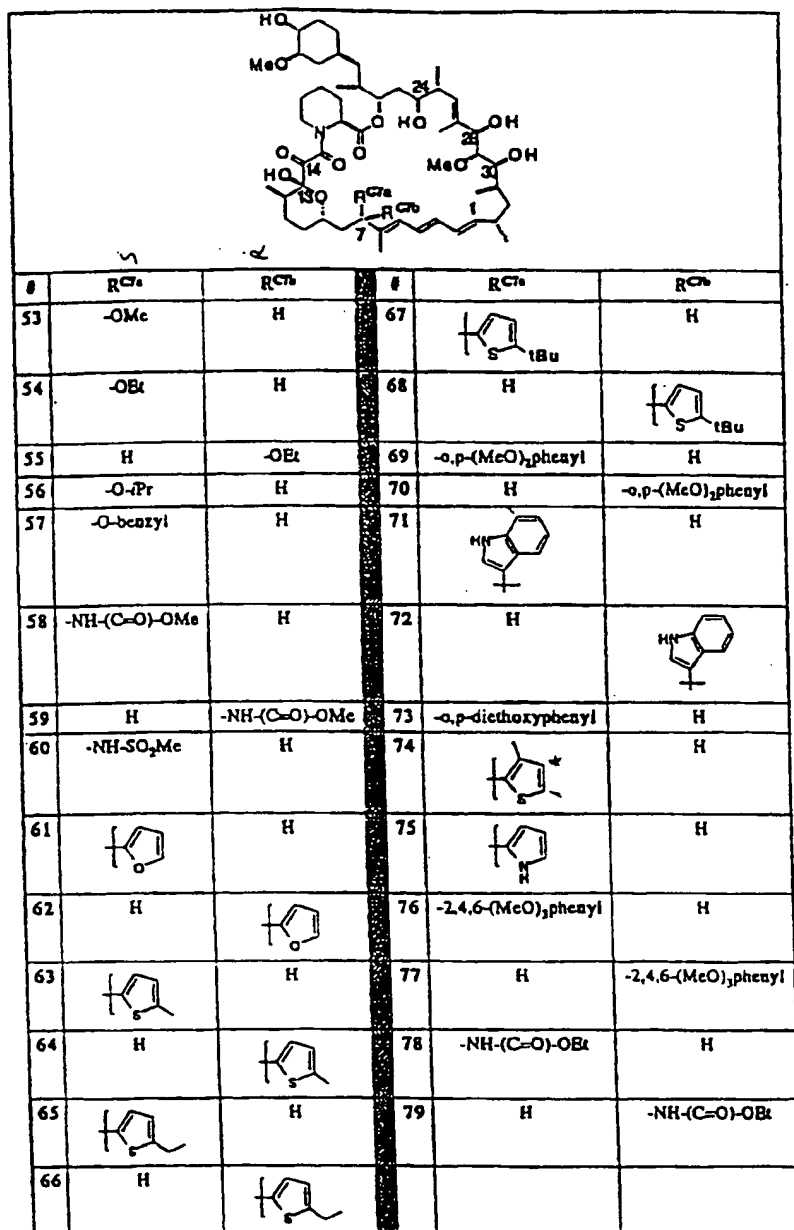 HO
MeO
24
HO
OH
28
N
O
MeO
OH
30
O
O
14
HO
13
O
R^C7a
R^C7b
1
7
S R
# R^C7a R^C7b # R^C7a R^C7b
53 -OMe H 67 S tBu H
54 -OEt H 68 H S tBu
55 H -OEt 69 -o,p-(MeO)₂phenyl H
56 -O-iPr H 70 H -o,p-(MeO)₂phenyl
57 -O-benzyl H 71 HN H
58 -NH-(C=O)-OMe H 72 H HN
59 H -NH-(C=O)-OMe 73 -o,p-diethoxyphenyl H
60 -NH-SO₂Me H 74 S H
61 O H 75 N H H
62 H O 76 -2,4,6-(MeO)₃phenyl H
63 S H 77 H -2,4,6-(MeO)₃phenyl
64 H S 78 -NH-(C=O)-OEt H
65 S H 79 H -NH-(C=O)-OEt
66 H S